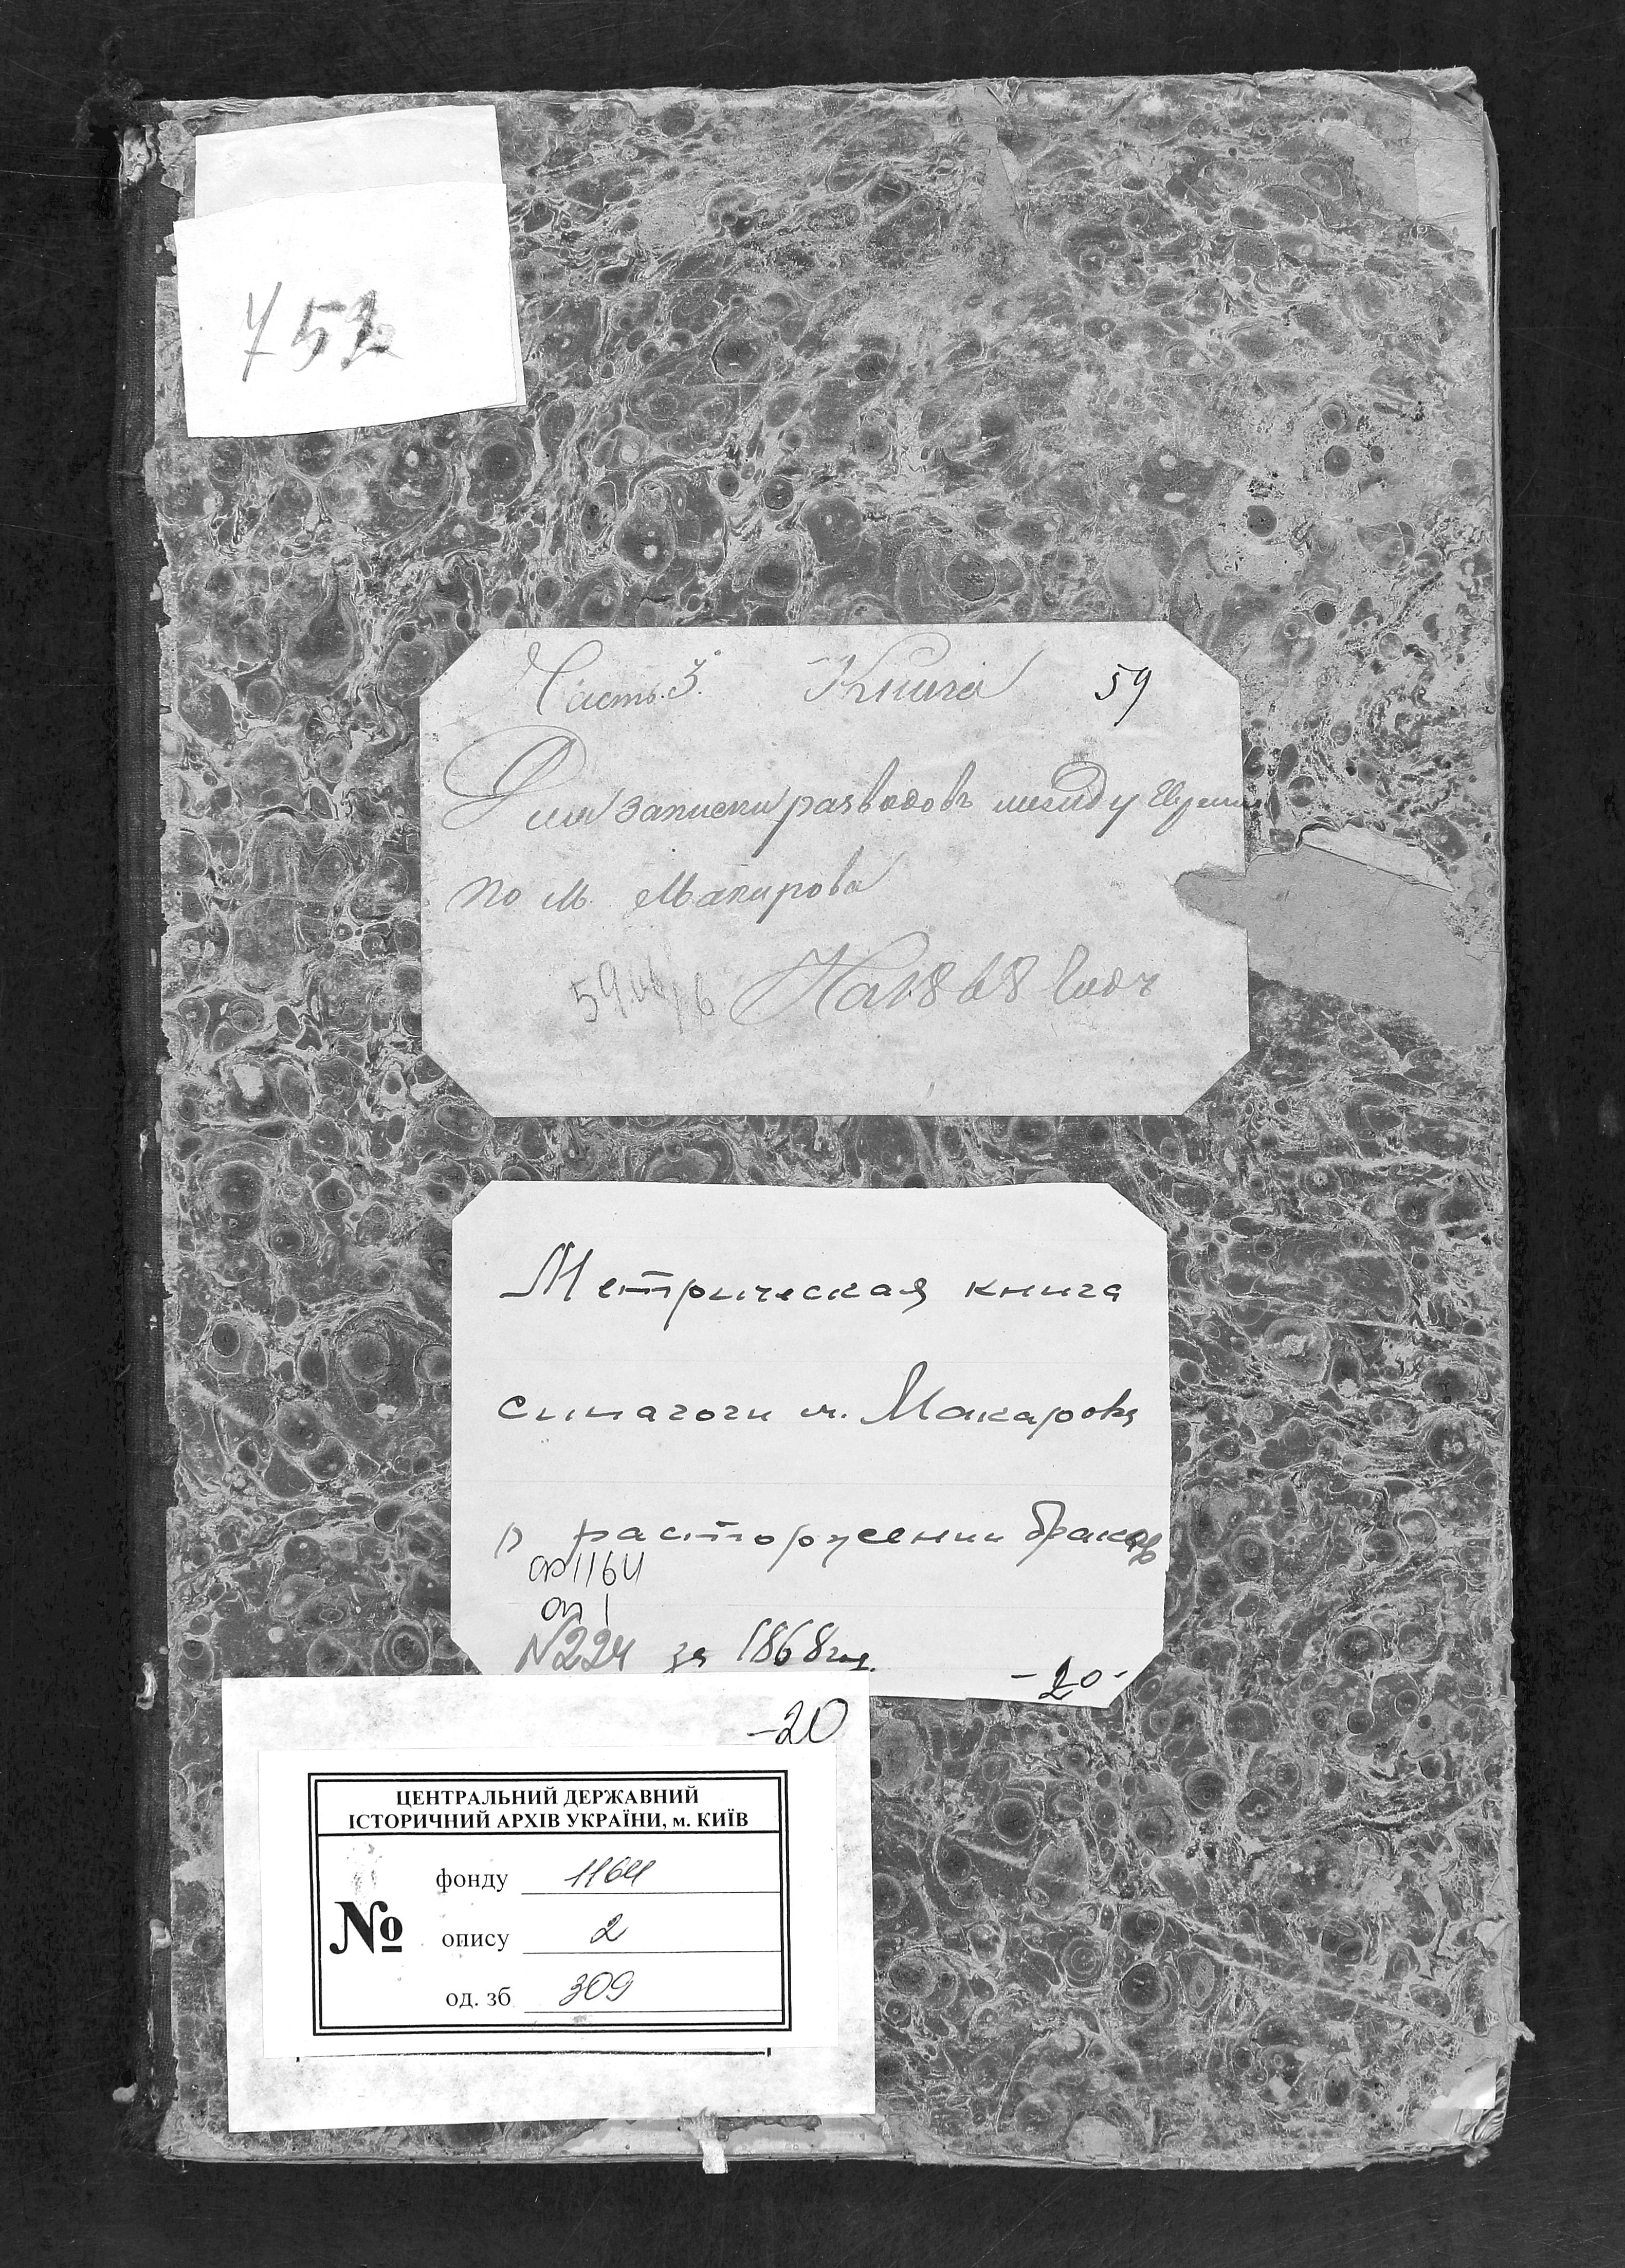 752
Часть 3. Книга 59
Для записки разводовъ между Евреями
по м. Макарова
На 1868 Годъ
Метрическая книга
синагоги м. Макарова
о расторжении браков
ф 1164
оп 1
N224 за 1868 год.
-20-
-20
ЦЕНТРАЛЬНИЙ ДЕРЖАВНИЙ
ІСТОРИЧНИЙ АРХІВ УКРАЇНИ, м. КИЇВ
№
фонду 1164
опису 2
од. зб 309